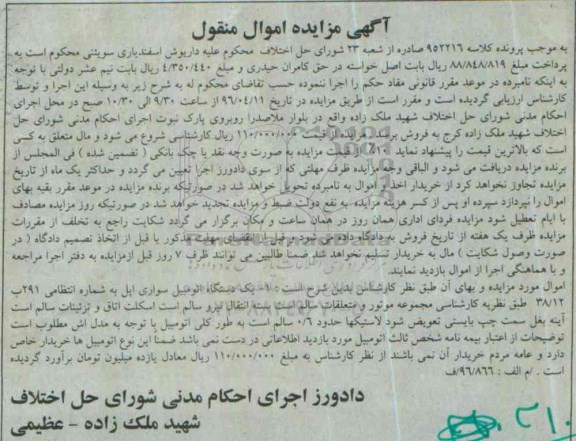 آگهی مزایده اموال منقول
به موجب پرونده کلاسه ۹۵۲۲۱۶ صادره از شعبه ۲۳ شورای حل اختلاف محکوم علیه داریوش اسفندیاری سوینئی محکوم است به
پرداخت مبلغ ۸۸/۸۴۸/۸۱۹ ریال بابت اصل خواسته در حق کامران حیدری و مبلغ ۴/۳۵۰/۴۴۰ ریال بابت نیم عشر دولتی با توجه
به اینکه نامبرده در موعد مقرر قانونی مفاد حکم را اجرا ننموده حسب تقاضای محکوم له به شرح زیر به وسیله این اجرا و توسط
کارشناس ارزیابی گردیده است و مقرر است از طریق مزایده در تاریخ ۹۶/۰۴/۱۱ از ساعت ۹/۳۰ الی ۱۰/۳۰ صبح در محل اجرای
احکام مدنی شورای حل اختلاف شهید ملک زاده واقع در بلوار ملاصدرا روبروی پارک نبوت اجرای احکام مدنی شورای حل
اختلاف شهید ملک زاده کرج به فروش برسد مزایده از قیمت ۱۱۰/۰۰۰/۰۰۰ ریال کارشناسی شروع می شود و مال متعلق به کسی
است که بالاترین قیمت را پیشنهاد نماید ۱۰٪ از قیمت مزایده به صورت وجه نقد یا چک بانکی ( تضمین شده ) فی المجلس از
برنده مزایده دریافت می شود و الباقی وجه مزایده ظرف مهلتی که از سوی دادورز اجرا تعیین می گردد و حداکثر یک ماه از تاریخ
مزایده تجاوز نخواهد کرد از خریدار اخذ و اموال به نامبرده تحویل خواهد شد در صورتیکه برنده مزایده در موعد مقرر بقیه بهای
اموال را نپردازد سپرده او پس از کسر هزینه مزایده به نفع دولت ضبط و مزایده تجدید خواهد شد در صورتیکه روز مزایده مصادف
با ایام تعطیل شود مزایده فردای اداری همان روز در همان ساعت و مکان برگزار می گردد شکایت راجع به تخلف از مقررات
مزایده ظرف یک هفته از تاریخ فروش به دادگاه داده می شود و قبل از انقضای مهلت مذکور یا قبل از اتخاذ تصمیم دادگاه ( در
صورت وصول شکایت ) مال به خریدار تسلیم نخواهد شد ضمنا طالبین می توانند ظرف ۷ روز قبل ازمزایده به دفتر اجرا مراجعه
و با هماهنگی اجرا از اموال بازدید نمایند.
اموال مورد مزایده و بهای آن طبق نظر کارشناس بدین شرح است : ۱- یک دستگاه اتومبیل سواری اپل به شماره انتظامی ۲۹۱ب
۳۸/۱۲ طبق نظریه کارشناسی مجموعه موتور و متعلقات سالم است بسته انتقال نیرو سالم است اسکلت اتاق و تزئینات سالم است
آینه بغل سمت چپ بایستی تعویض شود لاستیکها حدود ۰/۶ سالم است به طور کلی اتومبیل با توجه به مدل اش مطلوب است
توضیحات از اعتبار بیمه نامه شخص ثالث اتومبیل مورد بازدید اطلاعاتی در دست نمی باشد ضمنا این نوع اتومبیل ها خریدار خاص
دارد و عامه مردم خریدار آن نمی باشند از نظر کارشناس به مبلغ ۱۱۰/۰۰۰/۰۰۰ ریال معادل یازده میلیون تومان برآورد گردیده
است . /م الف : ۹۶/۸۶۶/ف
دادورز اجرای احکام مدنی شورای حل اختلاف
شهید ملک زاده - عظیمی
۳۱۰